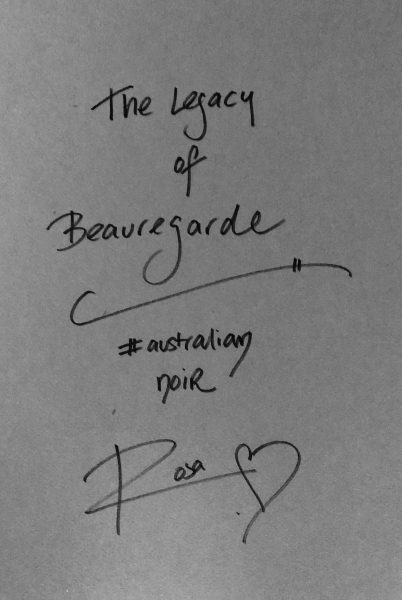 The Legacy
of
Beauregarde
#australian
noiR
Rosa